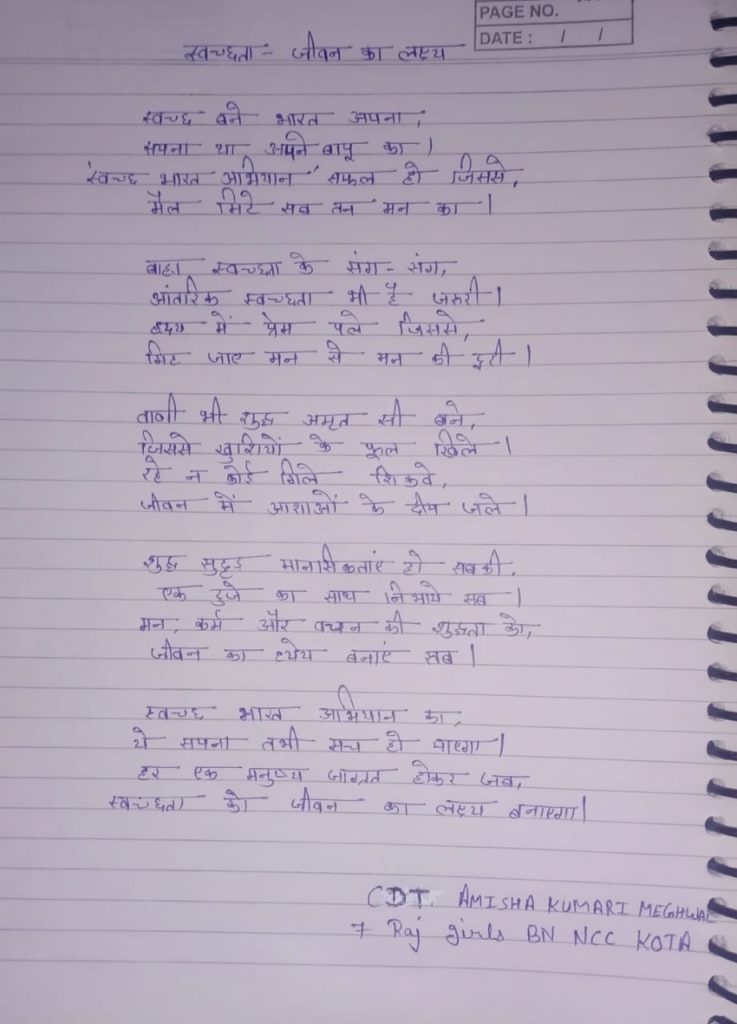 PAGE NO.
DATE : / /
स्वच्छता - जीवन का लक्ष्य
स्वच्छ बने भारत अपना,
सपना था अपने बापू का।
स्वच्छ भारत अभियान सफल हो जिससे,
मैल मिटे सब तन मन का।
बाह्य स्वच्छता के संग - संग,
आंतरिक स्वच्छता भी है जरुरी।
हृदय में प्रेम पले जिससे,
मिट जाए मन से मन की दूरी।
वाणी भी शुद्ध अमृत सी बने,
जिससे खुशियों के फूल खिले।
रहे न कोई गिले शिकवे,
जीवन में आशाओं के दीप जले।
शुद्ध सुदृढ मानसिकताएं हो सबकी,
एक दुजे का साथ निभाये सब।
मन, कर्म और वचन की शुद्धता को,
जीवन का ध्येय बनाएं सब।
स्वच्छ भारत अभियान का,
ये सपना तभी सच हो पाएगा।
हर एक मनुष्य जाग्रत होकर जब,
स्वच्छता को जीवन का लक्ष्य बनाएगा।
CDT. AMISHA KUMARI MEGHWAL
7 Raj girls BN NCC KOTA